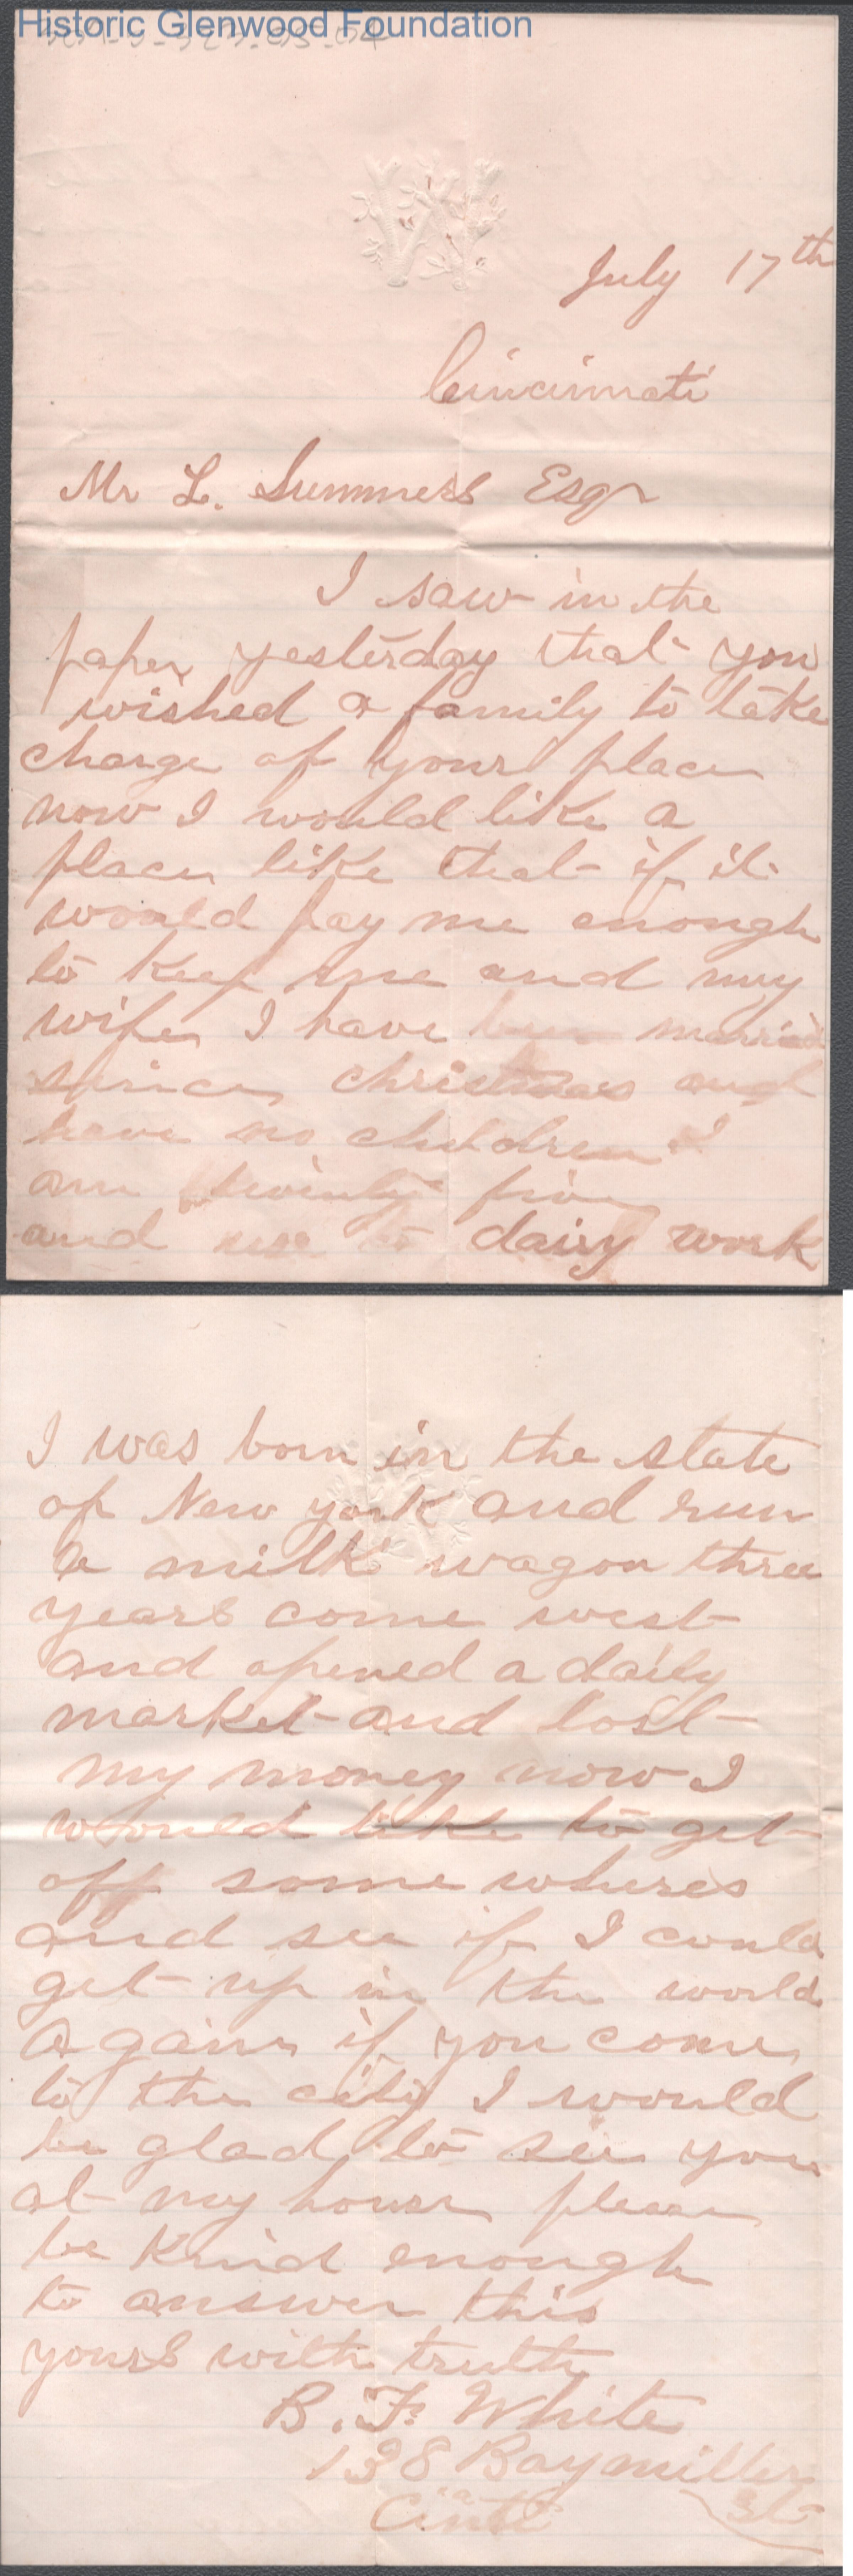 Historic Glenwood Foundation
W
July 17th
Cincinnati
Mr L. Summers Esqr
I saw in the
paper yesterday that you
wished a family to take
charge of your place
now I would like a
place like that if it
would pay me enough
to keep me and my
wife I have been married
since christmas and
have no children I
am twenty five
and use to dairy work
I was born in the state
of New york and run
a milk wagon three
years come west
and opened a daily
market and lost
my money now I
would like to get
off some wheres
and see if I could
get up in the world
again if you come
to the city I would
be glad to see you
at my house please
be kind enough
to answer this
yours with truth
B. F. White
138 Baymiller
St
Cinti